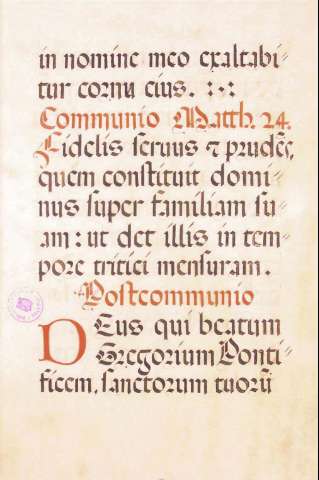 in nomine meo exaltabi⸗
tur cornu eius. :·:
Communio Matth. 24.
Fidelis seruus ⁊ prudēs,
quem constituit domi⸗
nus super familiam su⸗
am : ut det illis in tem⸗
pore tritici mensuram.
Postcommunio
DEus qui beatum
Gregorium Ponti⸗
ficem, sanctorum tuorū